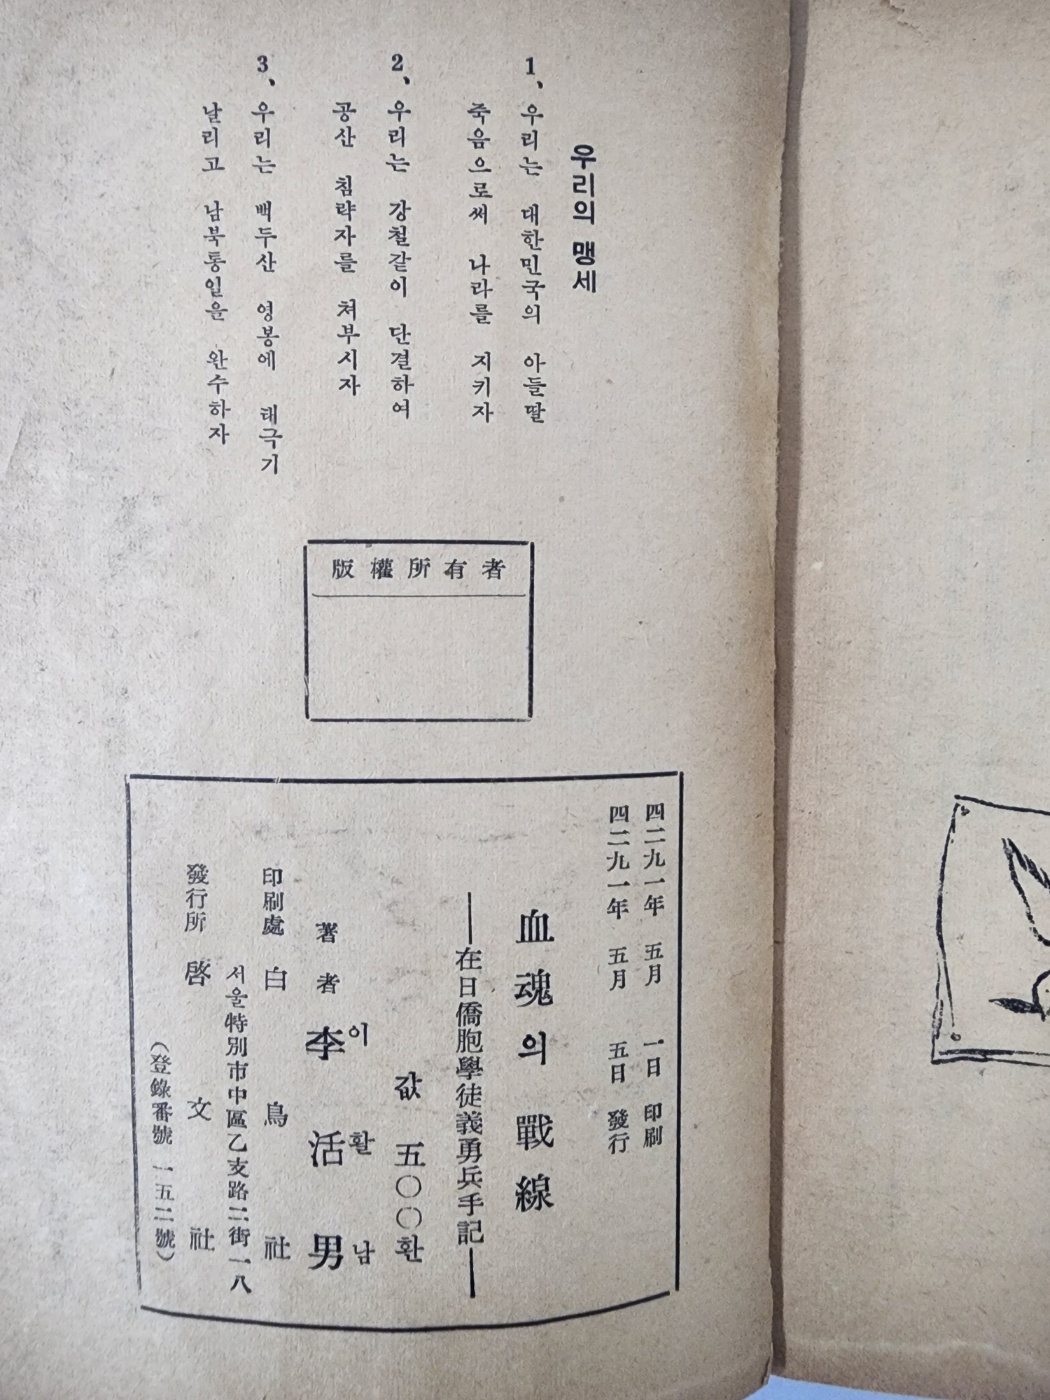 우리의 맹세
1、우리는 대한민국의 아들딸
죽음으로써 나라를 지키자
2、우리는 강철같이 단결하여
공산 침략자를 쳐부시자
3、우리는 백두산 영봉에 태극기
날리고 남북통일을 완수하자
版權所有者
四二九一年 五月 一日 印刷
四二九一年 五月 五日 發行
血魂의 戰線
―在日僑胞學徒義勇兵手記―
값 五〇〇환
著者 李活男
이활남
印刷處 白鳥社
서울特別市中區乙支路二街一八
發行所 啓文社
(登錄番號 一五二號)